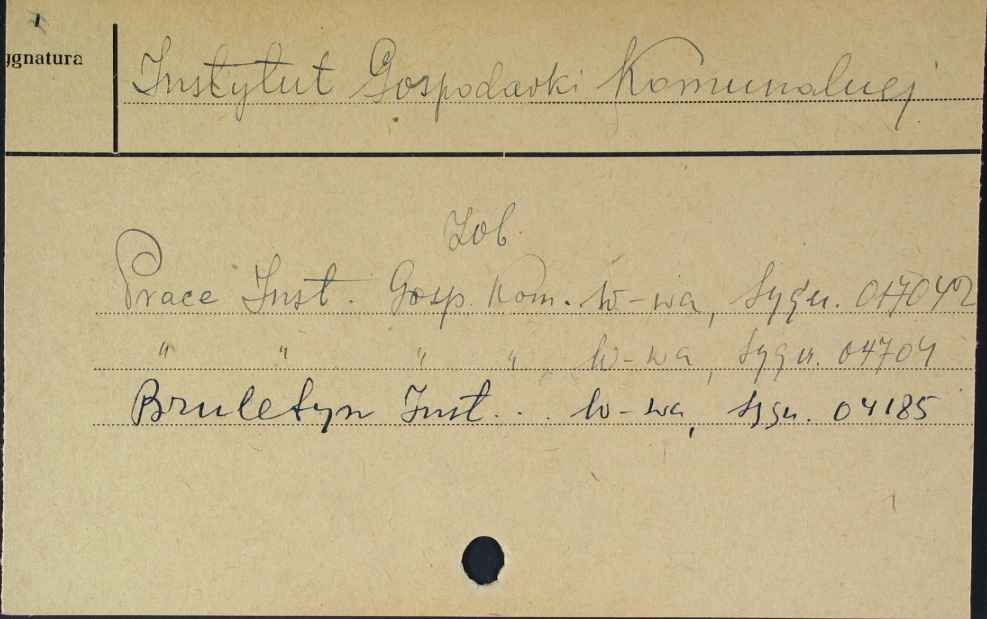 ygnatura
Instytut Gospodarki Komunalnej
Zob.
Prace Inst. Gosp. Kom. W-wa, Sygn.
" " " " W-wa, Sygn. 04704
Bruletyn Inst... W-wa, Sygn. 04185